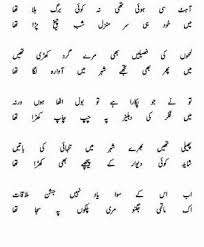 آہٹ سی ہوئی تھی نہ کوئی برگ ہلا تھا
میں خود ہی سرِ منزلِ شب چیخ پڑا تھا
لمحوں کی فصیلیں بھی مرے گرد کھڑی تھیں
میں پھر بھی تجھے شہر میں آوارہ لگا تھا
تو نے جو پکارا ہے تو بول اٹھا ہوں ورنہ
میں فکر کی دہلیز پہ چپ چاپ کھڑا تھا
پھیلی تھیں بھرے شہر میں تنہائی کی باتیں
شاید کوئی دیوار کے پیچھے بھی کھڑا تھا
اب اس کے سوا یاد نہیں جشنِ ملاقات
اک ماتمی جگنو مری پلکوں پہ سجا تھا